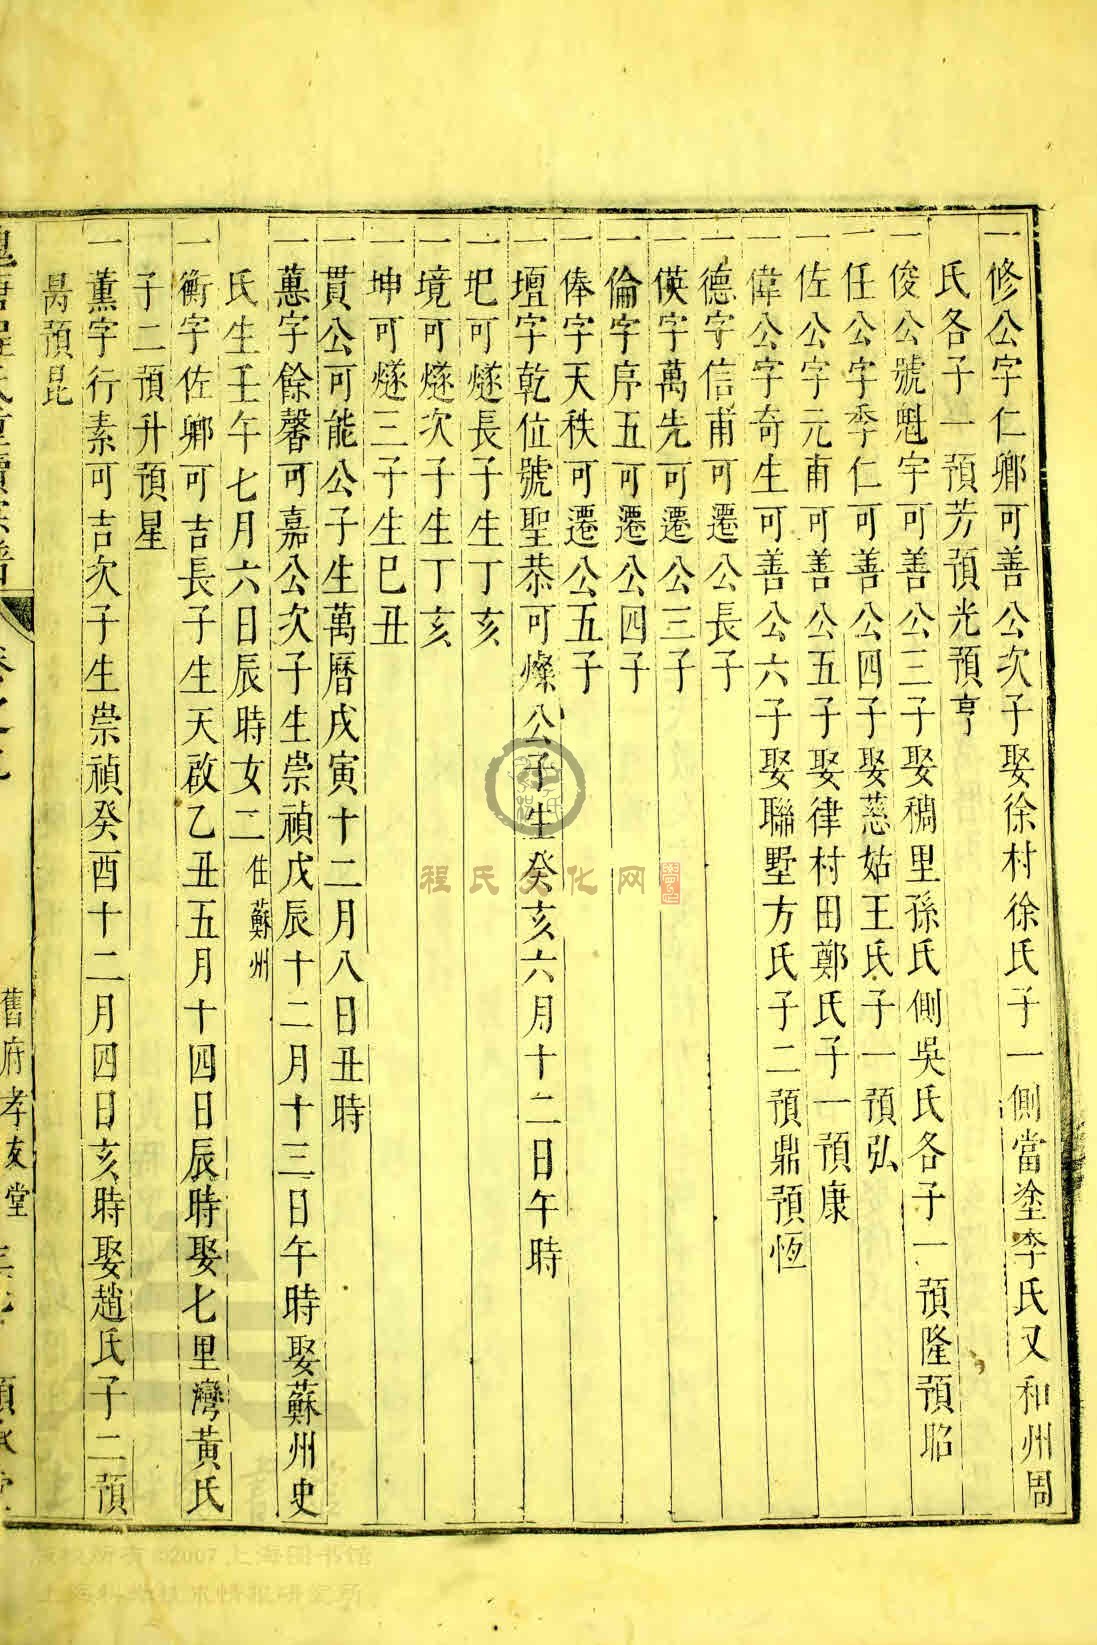 一修公字仁卿可善公次子娶徐村徐氏子一側當塗李氏又和州周
氏各子一預芳預光預亨
一俊公號魁宇可善公三子娶稠里孫氏側吳氏各子一預隆預昭
一任公字季仁可善公四子娶慈姑王氏子一預弘
一佐公字元甫可善公五子娶律村田鄭氏子一預康
一偉公字奇生可善公六子娶聯墅方氏子二預鼎預恆
一德字信甫可遷公長子
一偀字萬先可遷公三子
一倫字序五可遷公四子
一俸字天秩可遷公五子
一壇字乾位號聖恭可燦公子生癸亥六月十二日午時
一圯可燧長子生丁亥
一境可燧次子生丁亥
一坤可燧三子生巳丑
一貫公可能公子生萬曆戊寅十二月八日丑時
一蕙字餘馨可嘉公次子生崇禎戊辰十二月十三日午時娶蘇州史
氏生壬午七月六日辰時女二 住蘇州
一衡字佐卿可吉長子生天啟乙丑五月十四日辰時娶七里灣黃氏
子二預升預星
一薰字行素可吉次子生崇禎癸酉十二月四日亥時娶趙氏子二預
昺預昆
氏重續宗譜 卷之九 舊府孝友堂
程氏文化网
版权所有©2007上海图书馆
上海科学技术情报研究所